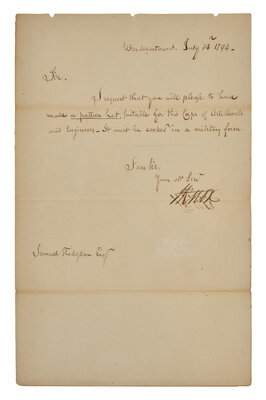 War department. July 14th 1794.
Sir.
I request that you will please to have
made a pattern hat, suitable for the Corps of Artillerists
and Engineers. It must be cocked in a military form.
I am Sir.
Your obt Servt
HKnox
Samuel Hodgdon Esqr